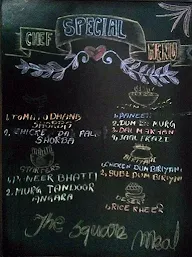 SPECIAL
CHEF
MENU
1. TOMATO DHANIA
SHORBA
2. CHICKE DA PALA
SHORBA
STARTERS
1. PANEER BHATTI
2. MURG TANDOOR
ANGARA
1. PANEER
2. DUM KA MURG
3. DAL MAKHANI
4. 
1. CHICKEN DUM BIRIYANI
2. SUBZ DUM BIRIYANI
DESERT
RICE KHEER
The Square Meal